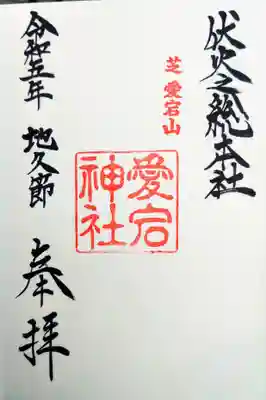 伏火之総本社
芝 愛宕山
愛宕神社
奉拝
令和五年 地久節